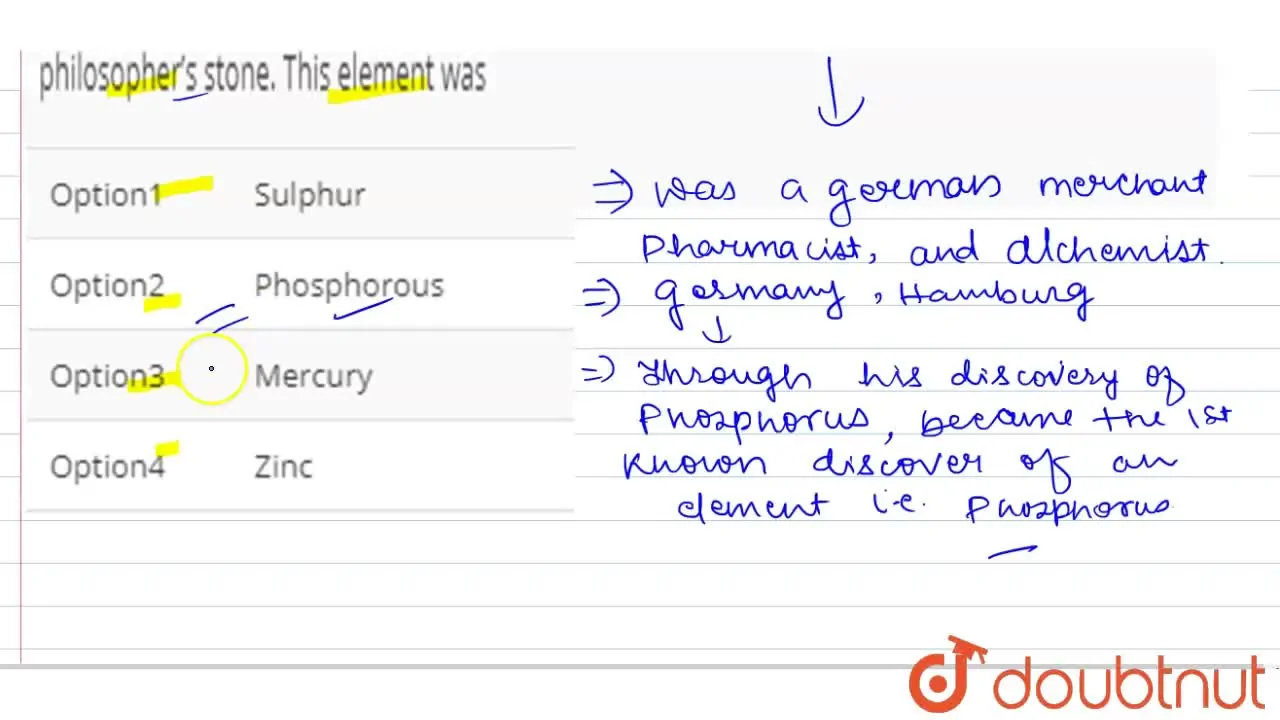 philosopher's stone. This element was
Option1 Sulphur
Option2 Phosphorous
Option3 Mercury
Option4 Zinc
⇒ was a german merchant
Pharmacist, and Alchemist.
⇒ germany, Hamburg
↓
⇒ through his discovery of
Phosphorus, became the 1st
known discover of an
element i.e. Phosphorus
doubtnut